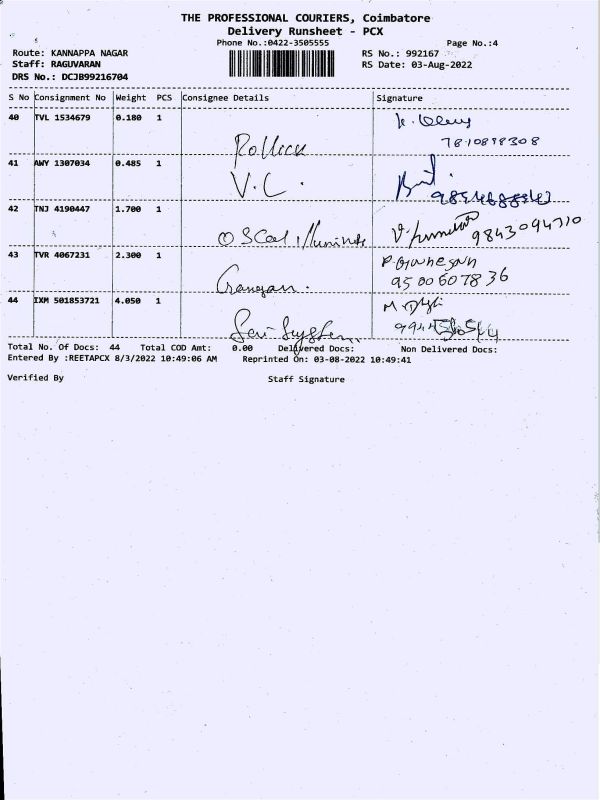 THE PROFESSIONAL COURIERS, Coimbatore
Delivery Runsheet - PCX
Phone No.:0422-3505555 Page No.:4
Route: KANNAPPA NAGAR RS No.: 992167
Staff: RAGUVARAN RS Date: 03-Aug-2022
DRS No.: DCJB99216704
S No Consignment No Weight PCS Consignee Details Signature
40 TVL 1534679 0.180 1
7810898308
41 AWY 1307034 0.485 1
V.C.
42 TNJ 4190447 1.700 1
9843094710
43 TVR 4067231 2.300 1
9500607836
44 IXM 501853721 4.050 1
Total No. Of Docs: 44 Total COD Amt: 0.00 Delivered Docs: Non Delivered Docs:
Entered By :REETAPCX 8/3/2022 10:49:06 AM Reprinted On: 03-08-2022 10:49:41
Verified By Staff Signature